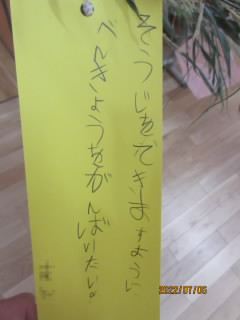 そうじをできますように
べんきょうをがんばりたい。
2022/07/05